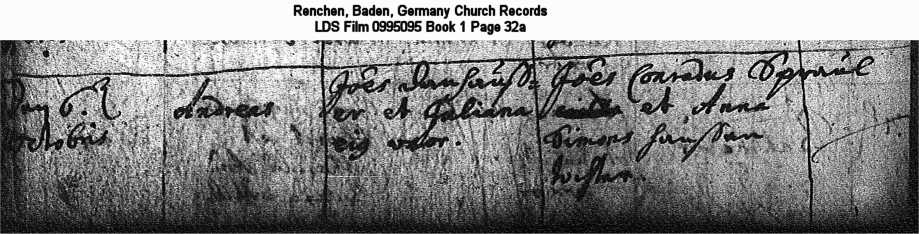 Renchen, Baden, Germany Church Records
LDS Film 0995095 Book 1 Page 32a
6.
Andreas
Joês Danhauss=
er et Juliana
eig uxor.
Joês Conradus Spraul
et Anna
Simons Haussan